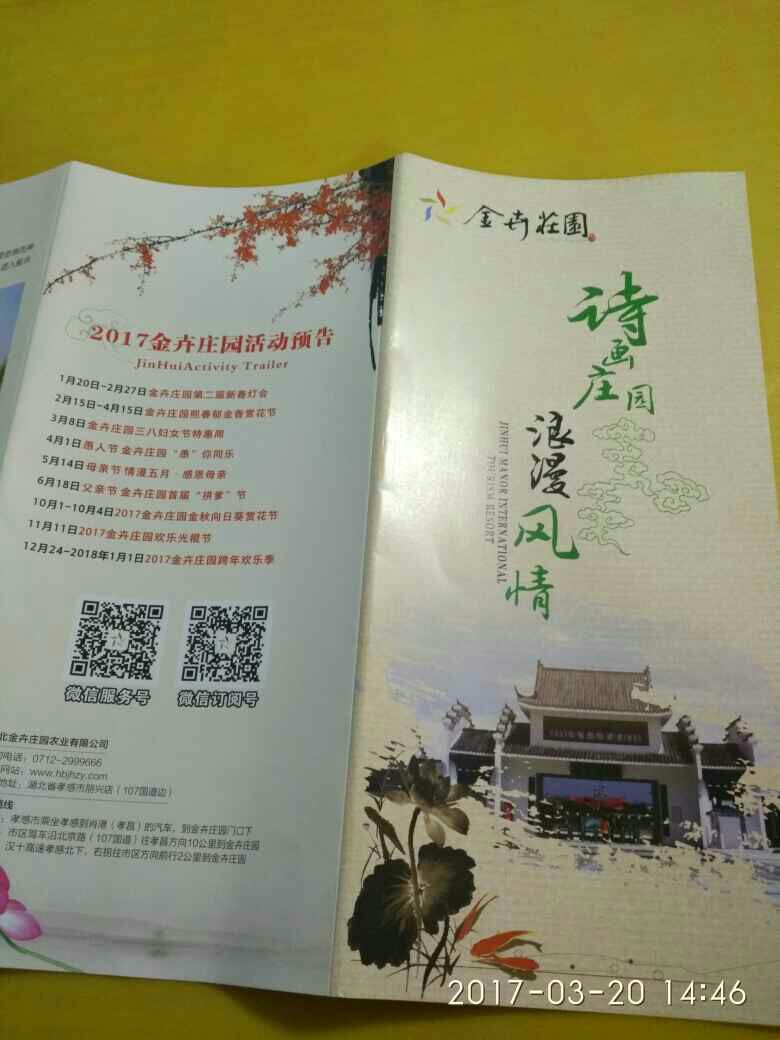 2017金卉庄园活动预告
JinHuiActivity Trailer
1月20日-2月27日金卉庄园第二届新春灯会
2月15日-4月15日金卉庄园熙春郁金香赏花节
3月8日金卉庄园三八妇女节特惠周
4月1日愚人节 金卉庄园“愚”你同乐
5月14日母亲节 情漫五月·感恩母亲
6月18日父亲节 金卉庄园首届“拼爹”节
10月1-10月4日2017金卉庄园金秋向日葵赏花节
11月11日2017金卉庄园欢乐光棍节
12月24-2018年1月1日2017金卉庄园跨年欢乐季
微信服务号 微信订阅号
北金卉庄园农业有限公司
电话：0712-2999666
网站：www.hbjhzy.com
地址：湖北省孝感市朋兴店（107国道边）
路线
：孝感市乘坐孝感到肖港（孝昌）的汽车，到金卉庄园门口下
：市区驾车沿北京路（107国道）往孝昌方向10公里到金卉庄园
汉十高速孝感北下，右拐往市区方向前行2公里到金卉庄园
金卉莊園
诗画庄园
浪漫风情
JINHUI MANOR INTERNATIONAL
TOURISM RESORT
2017-03-20 14:46